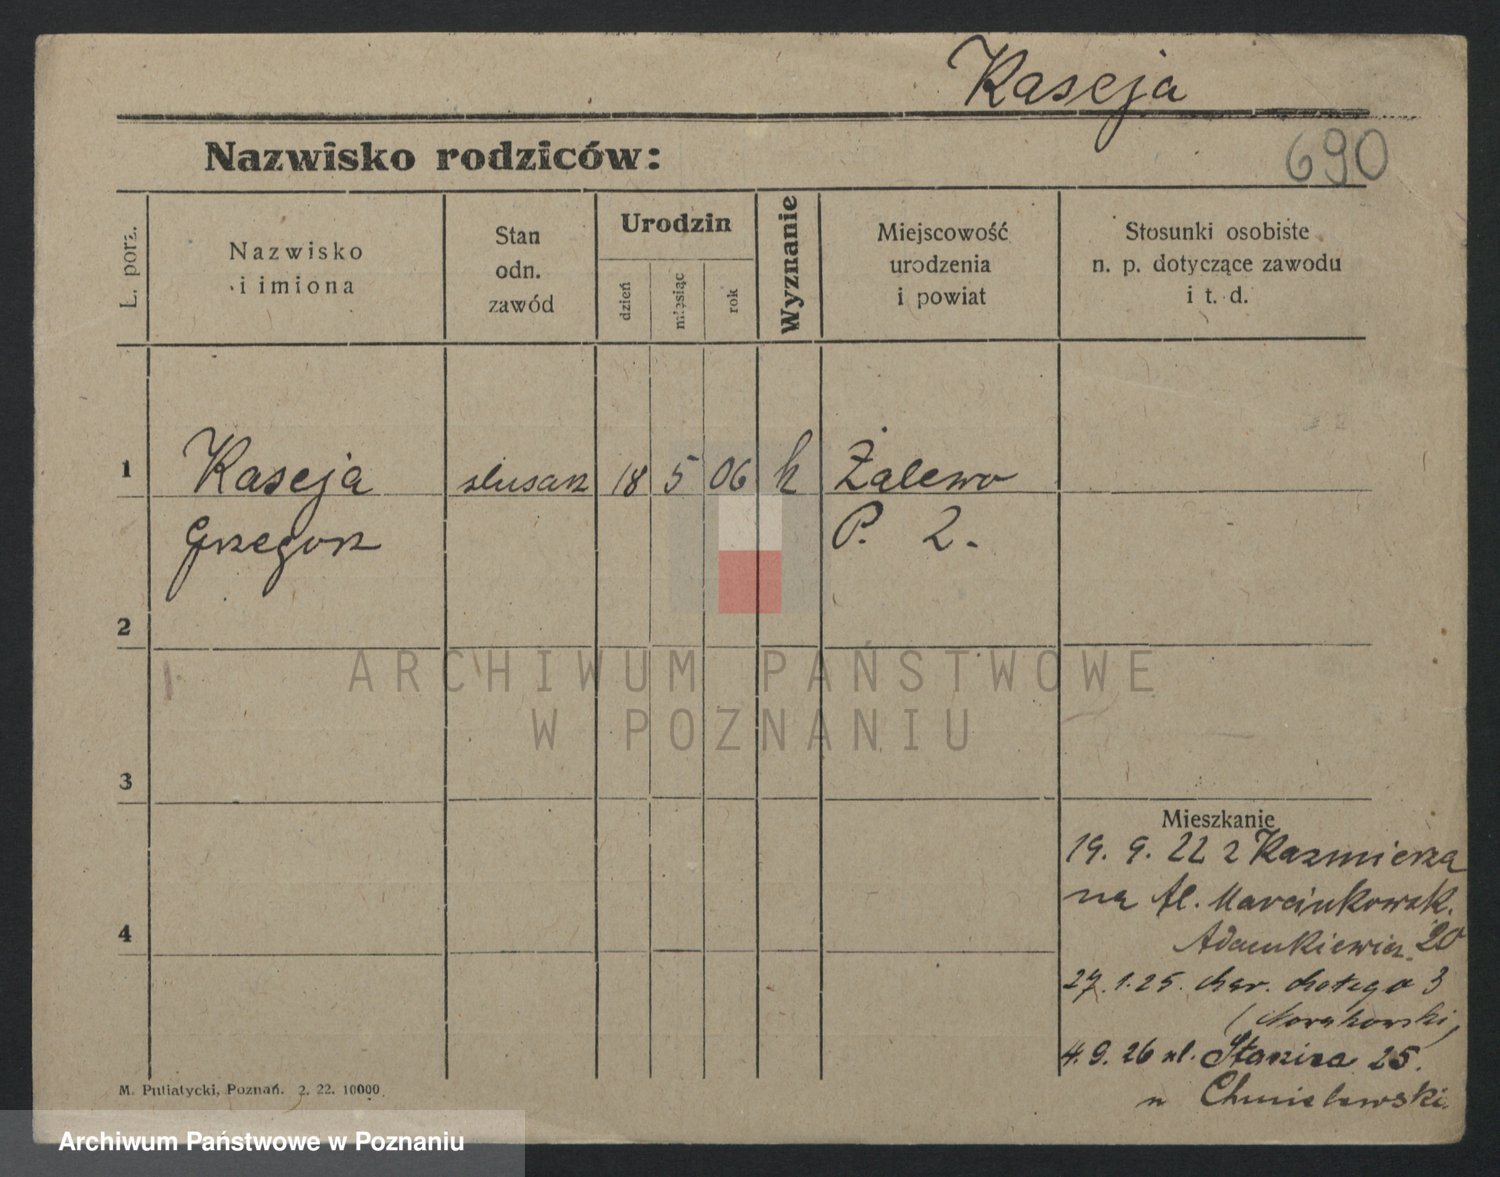 Kaseja
690
Nazwisko rodziców:
L. porz.
Nazwisko
i imiona
Stan
odn.
zawód
Urodzin
dzień
miesiąc
rok
Wyznanie
Miejscowość
urodzenia
i powiat
Stosunki osobiste
n. p. dotyczące zawodu
i t. d.
1
Kaseja
ślusarz
18
5
06
k
Żalewo
Grzegorz
P. 2.
2
ARCHIWUM PAŃSTWOWE
W POZNANIU
3
4
Mieszkanie
19. 9. 22 z Kazmierza
na Al. Marcinkowsk.
Adamkiewicz. 20
27. 1. 25. Mar. 3
4. 9. 26 ul. 25.
u
M. Putiatycki, Poznań. 2. 22. 10000
Archiwum Państwowe w Poznaniu